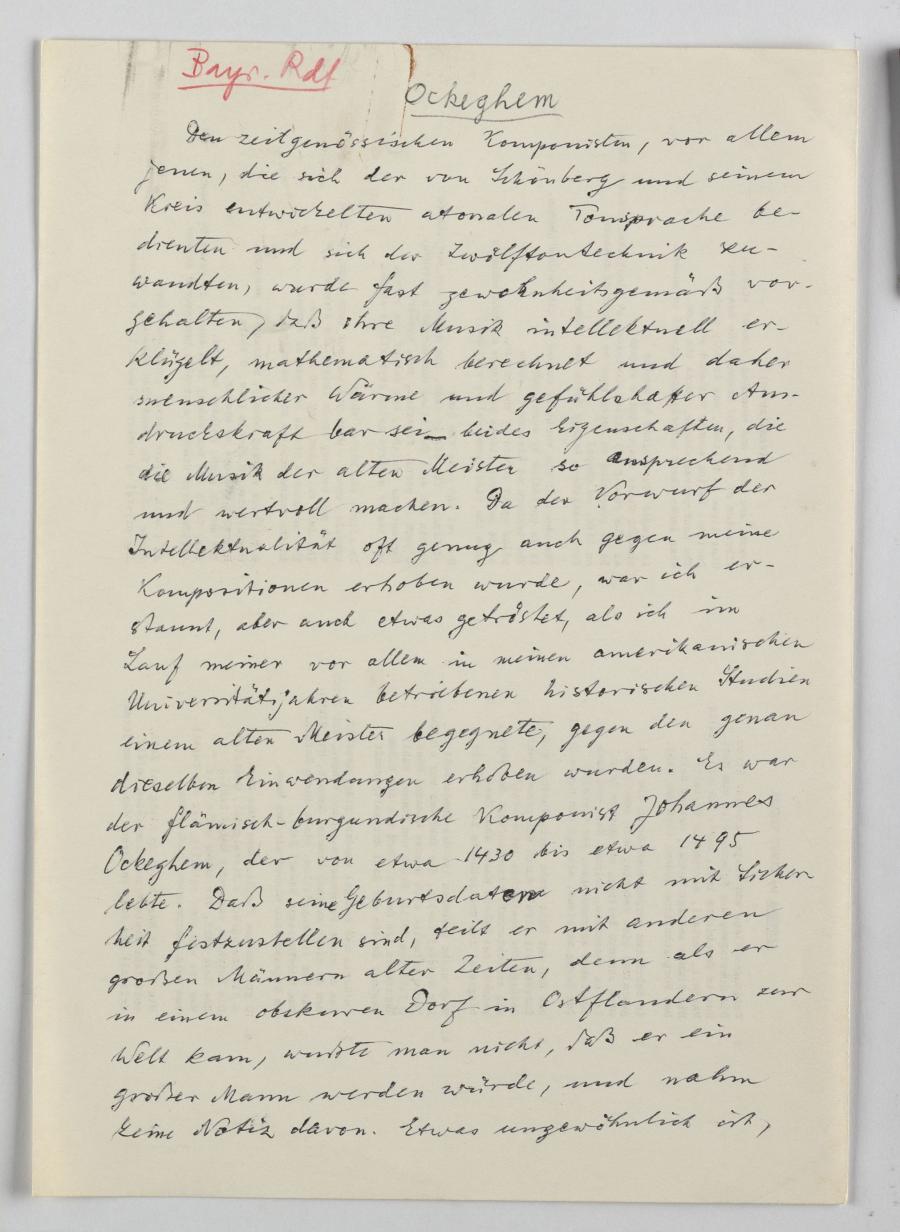 Bayr. Rdf
Ockeghem
Den zeitgenössischen Komponisten, vor allem
jenen, die sich der von Schönberg und seinem
Kreis entwickelten atonalen Tonsprache be-
dienten und sich der Zwölftontechnik zu-
wandten, wurde fast gewohnheitsgemäß vor-
gehalten, daß ihre Musik intellektuell er-
klügelt, mathematisch berechnet und daher
menschlicher Wärme und gefühlshafter Aus-
druckskraft bar sei – beides Eigenschaften, die
die Musik der alten Meister so ansprechend
und wertvoll machen. Da der Vorwurf der
Intellektualität oft genug auch gegen meine
Kompositionen erhoben wurde, war ich er-
staunt, aber auch etwas getröstet, als ich im
Lauf meiner vor allem in meinen amerikanischen
Universitätsjahren betriebenen historischen Studien
einem alten Meister begegnete, gegen den genau
dieselben Einwendungen erhoben wurden. Es war
der flämisch-burgundische Komponist Johannes
Ockeghem, der von etwa 1430 bis etwa 1495
lebte. Daß seine Geburtsdaten nicht mit Sicher-
heit festzustellen sind, teilt er mit anderen
großen Männern alter Zeiten, denn als er
in einem obskuren Dorf in Ostflandern zur
Welt kam, wußte man nicht, daß er ein
großer Mann werden würde, und nahm
keine Notiz davon. Etwas ungewöhnlich ist,